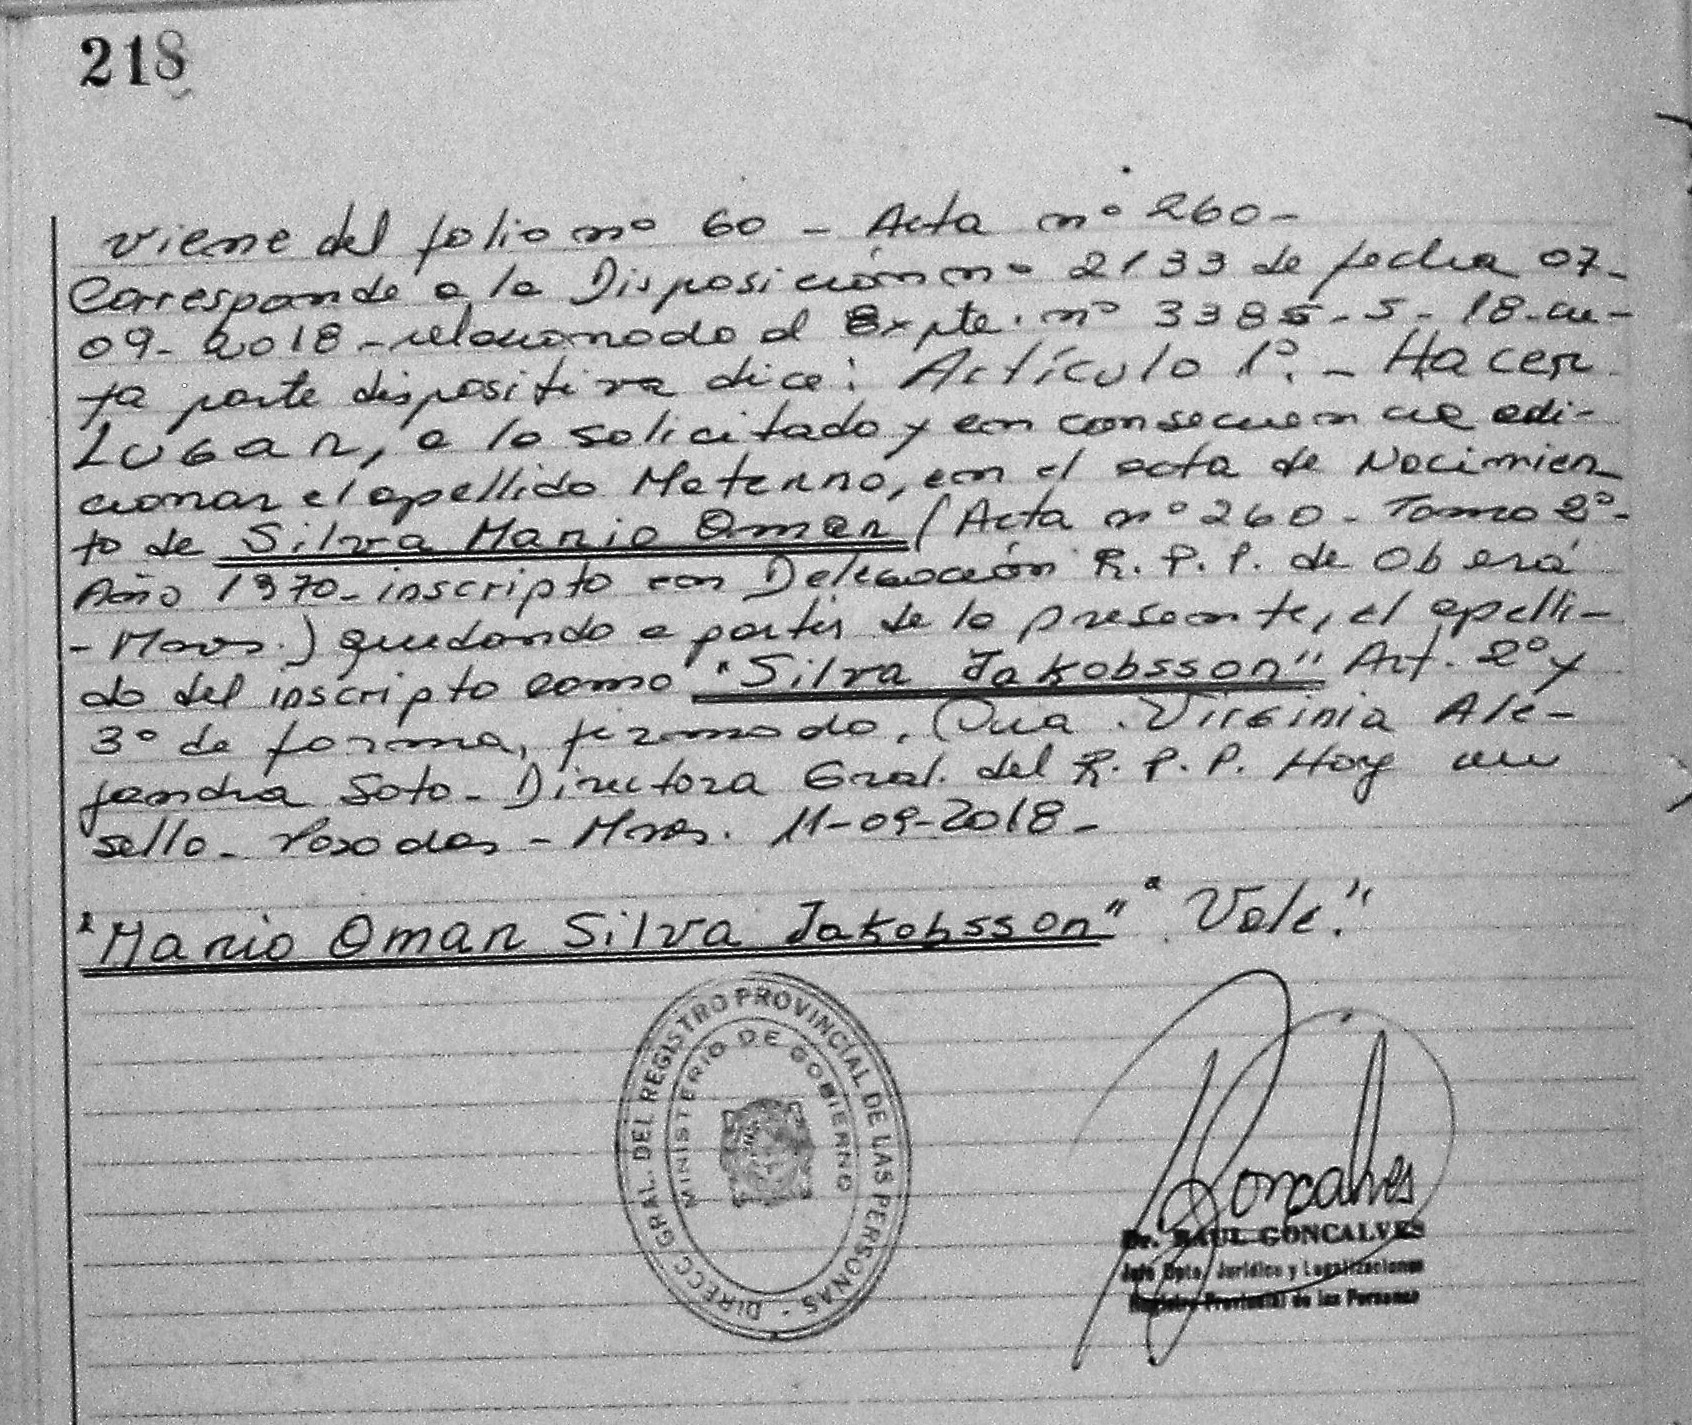 218
viene del folio nº 60 - Acta nº 260-
Corresponde a la Disposición nº 2133 de fecha 07-
09-2018 - relacionado al Expte. nº 3385-S-18-cu-
ya parte dispositiva dice: Artículo 1º.- Hacer
Lugar, a lo solicitado y en consecuencia adi-
cionar el apellido Materno, en el acta de Nacimien
to de Silva Mario Omar (Acta nº 260 - Tomo 2º-
Año 1970 - inscripto en Delegación R. P. P. de Oberá
- Mnes.) quedando a partir de la presente, el apelli-
do del inscripto como "Silva Jakobsson" Art. 2º y
3º de forma, firmado. Dra. Virginia Ale-
jandra Soto - Directora Gral. del R. P. P. Hay un
sello - Posadas - Mnes. 11-09-2018-
"Mario Omar Silva Jakobsson" "Vale."
DIRECC. GRAL. DEL REGISTRO PROVINCIAL DE LAS PERSONAS -
MINISTERIO DE GOBIERNO
Goncalves
Dr. RAUL GONCALVES
Jefe Dpto. Jurídico y Legalizaciones
Registro Provincial de las Personas